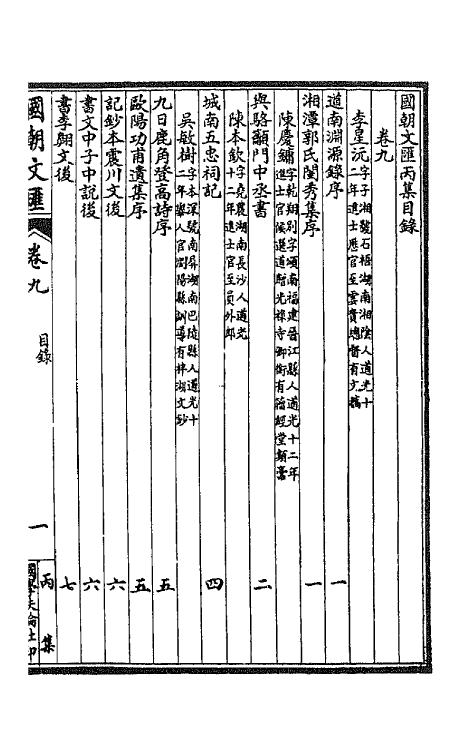 國朝文匯丙集目錄
卷九
李星沅 字子湘號石梧湖南湘陰人道光十二年進士歷官至雲貴總督有文稿
道南淵源錄序 一
湘潭郭氏閨秀集序 一
陳慶鏞 字乾翔別字頌南福建晉江縣人道光十二年進士官候選道贈光祿寺卿銜有籀經堂類稾
與駱籲門中丞書 二
陳本欽 字堯農湖南長沙人道光十二年進士官至員外郎
城南五忠祠記 四
吳敏樹 字本深號南屏湖南巴陵縣人道光十二年舉人官瀏陽縣訓導有柈湖文鈔
九日鹿角登高詩序 五
歐陽功甫遺集序 五
記鈔本震川文後 六
書文中子中說後 六
書李翱文後 七
國朝文匯 卷九 目錄 一 丙集
國學扶輪社印